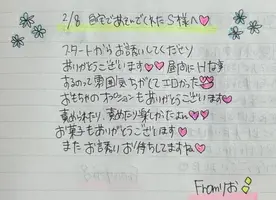 2/8 自宅であそんでくれたS様へ♡
スタートからお誘いしてくださり
ありがとうございます♡♡ 昼間にHな事
するのって雰囲気ちがくてエロかった
おもちゃのオプションもありがとうございます♡
責められたり、責めたり楽しかったよん♡♡
お菓子もありがとうございます♡
またお誘いお待ちしてますね♡
Fromりお